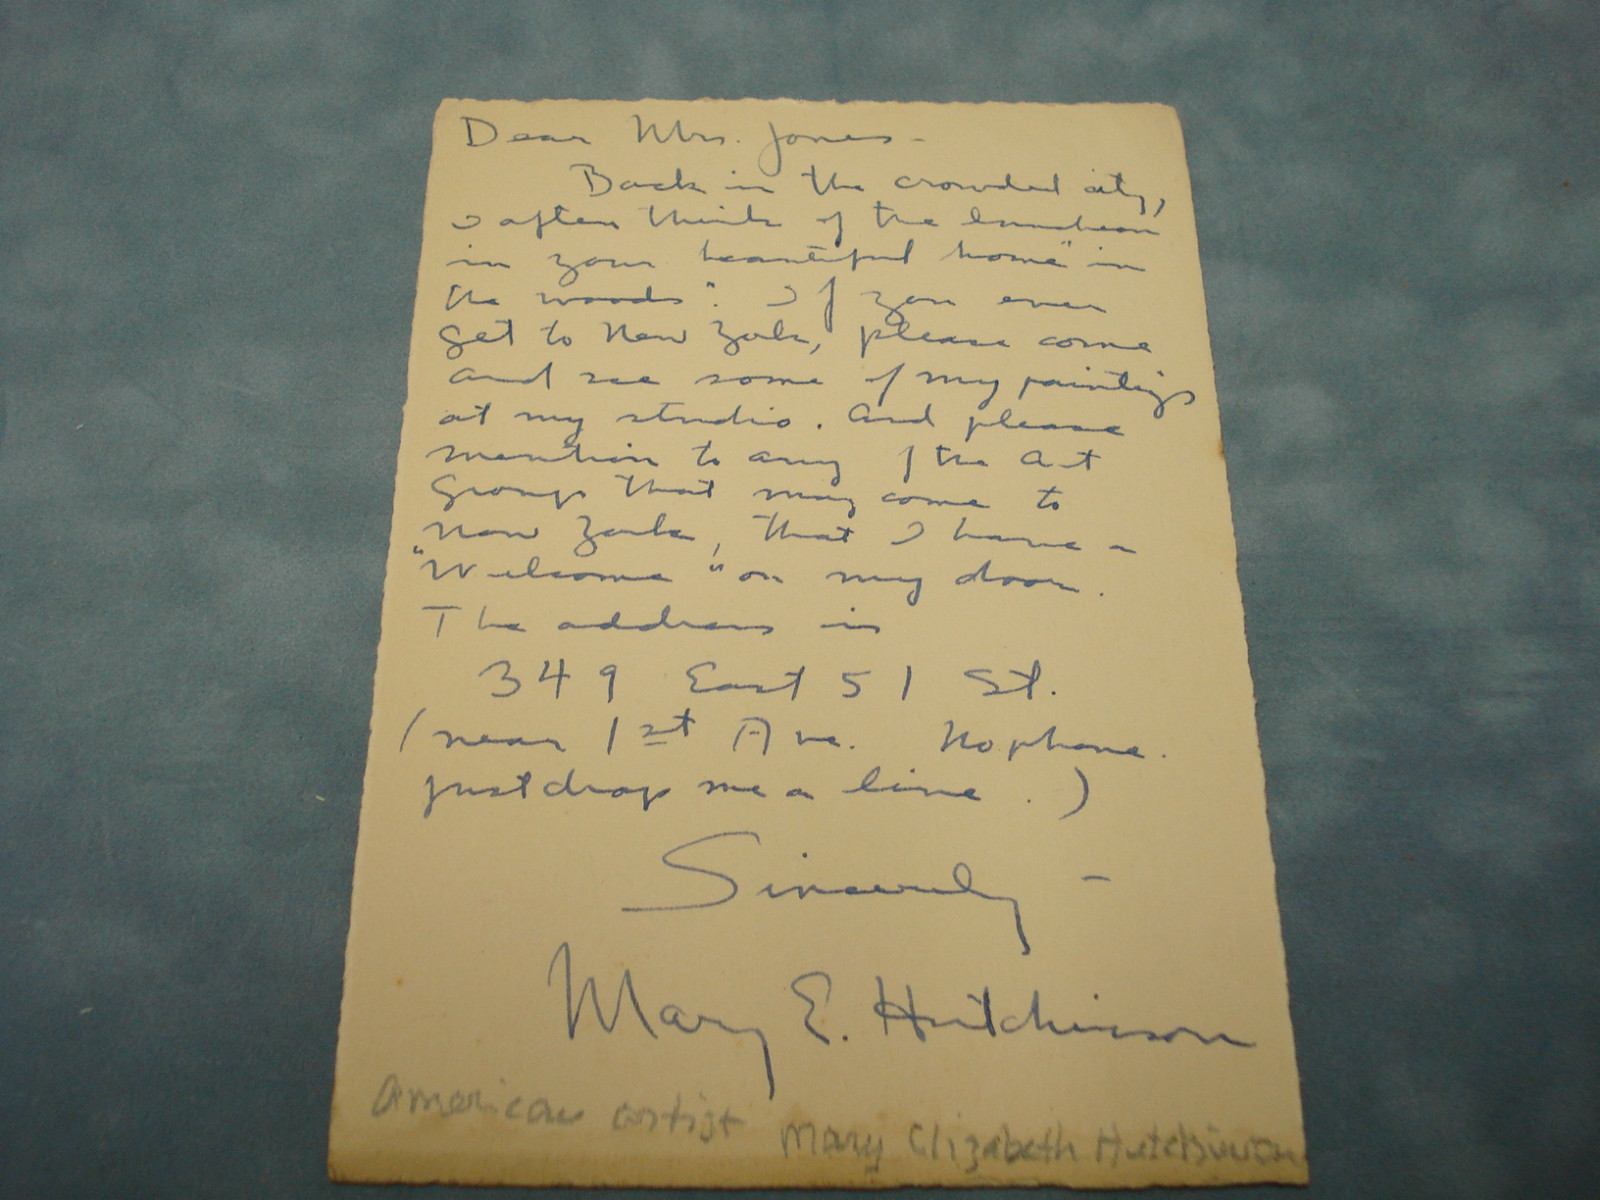 Dear Mrs. Jones -
Back in the crowded city,
I often think of the luncheon
in your beautiful home "in
the woods". If you ever
get to New York, please come
and see some of my paintings
at my studio. And please
mention to any of the Art
Groups that may come to
New York, that I have a
"Welcome" on my door.
The address is
349 East 51 St.
(near 1st Ave. No phone.
just drop me a line.)
Sincerely -
Mary E. Hutchinson
American artist Mary Elizabeth Hutchinson